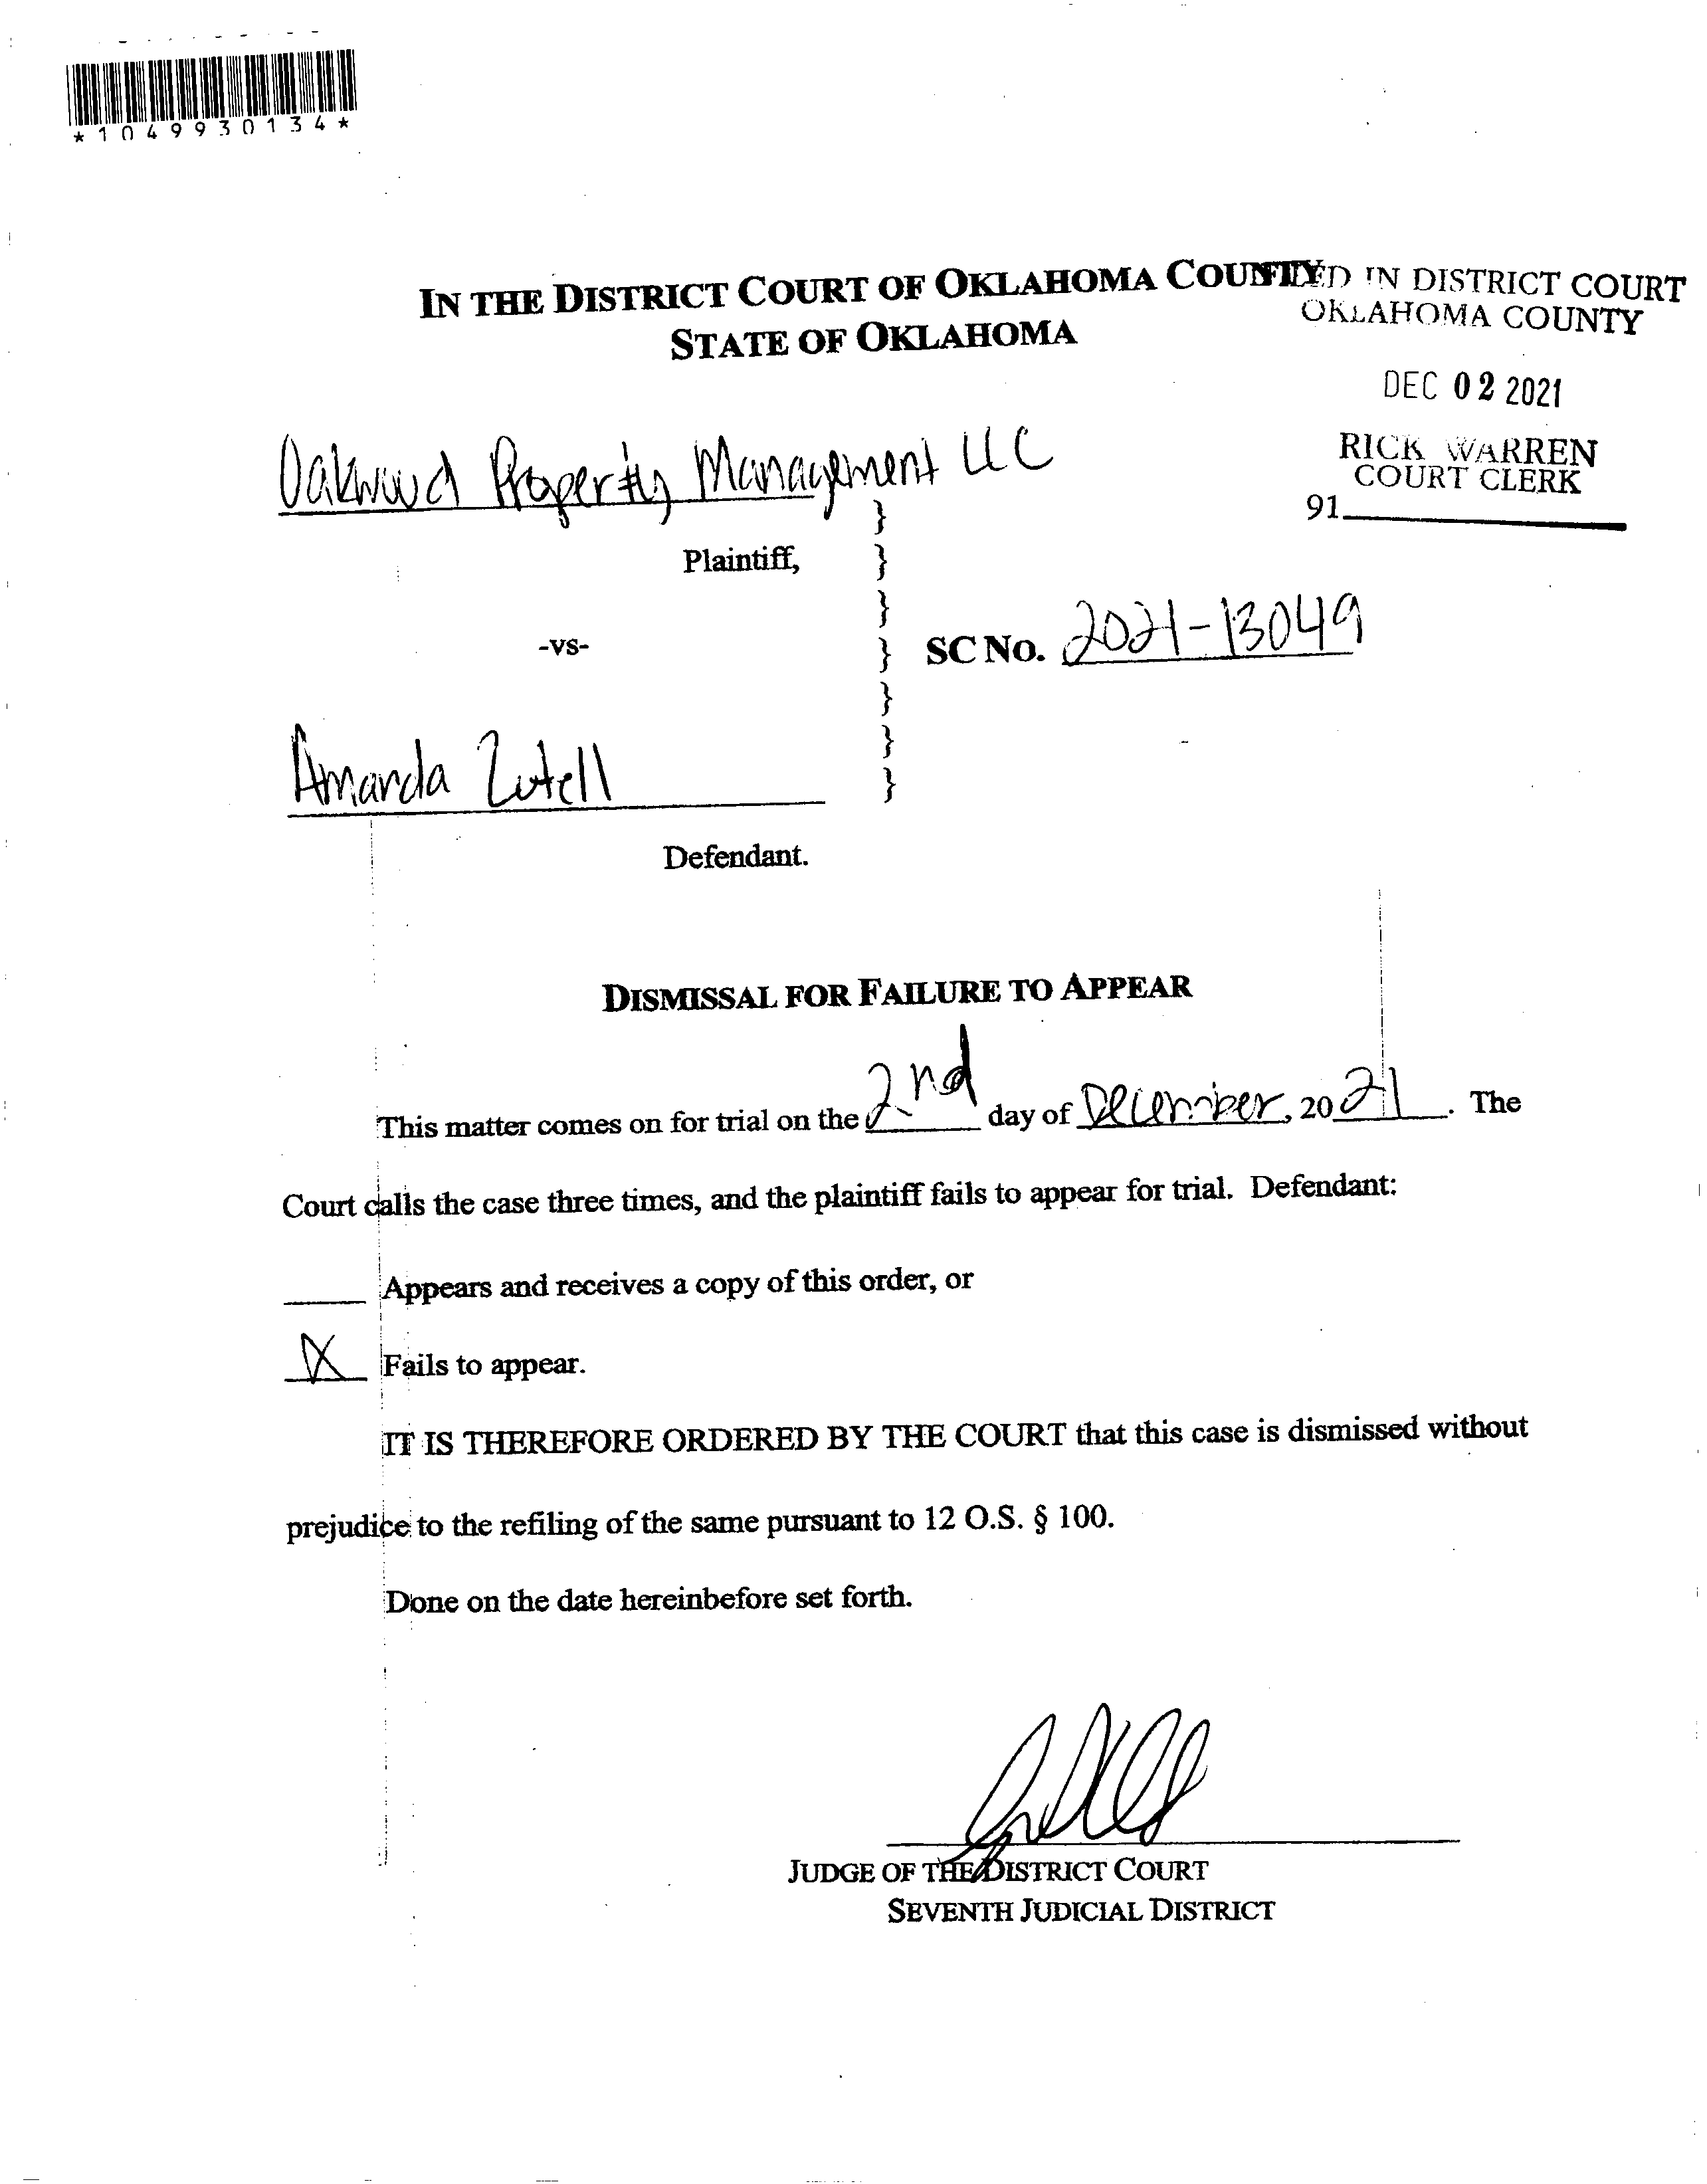 *1049930134*
IN THE DISTRICT COURT OF OKLAHOMA COUNTY
STATE OF OKLAHOMA
FILED IN DISTRICT COURT
OKLAHOMA COUNTY
DEC 02 2021
RICK WARREN
COURT CLERK
91
Oakwood Property Management LLC
Plaintiff,
-vs-
SC No. 2021-13049
Amanda Zutell
Defendant.
DISMISSAL FOR FAILURE TO APPEAR
This matter comes on for trial on the 2nd day of December, 2021. The
Court calls the case three times, and the plaintiff fails to appear for trial. Defendant:
Appears and receives a copy of this order, or
X Fails to appear.
IT IS THEREFORE ORDERED BY THE COURT that this case is dismissed without
prejudice to the refiling of the same pursuant to 12 O.S. § 100.
Done on the date hereinbefore set forth.
JUDGE OF THE DISTRICT COURT
SEVENTH JUDICIAL DISTRICT